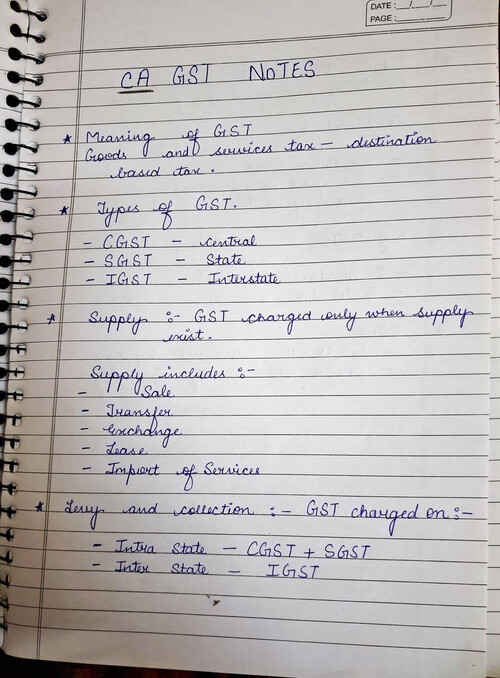 DATE : __/__/__
PAGE : ______
CA GST NOTES
★ Meaning of GST
Goods and services tax – destination
based tax.
★ Types of GST.
- CGST - central
- SGST - State
- IGST - Interstate
★ Supply :- GST charged only when supply
exist.
Supply includes :-
- Sale
- Transfer
- exchange
- Lease
- Import of Services
★ Levy and collection :- GST charged on :-
- Intra State - CGST + SGST
- Inter State - IGST